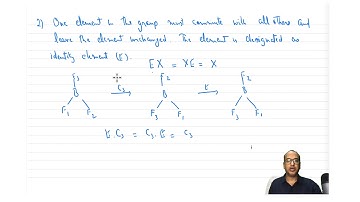 2) One element in the group must commute with all others and
leave the element unchanged. The element is designated as
identity element (E).
EX = XE = X
F3 F2 F2
B C3 B E B
F1 F2 F3 F1 F3 F1
E·C3 = C3·E = C3